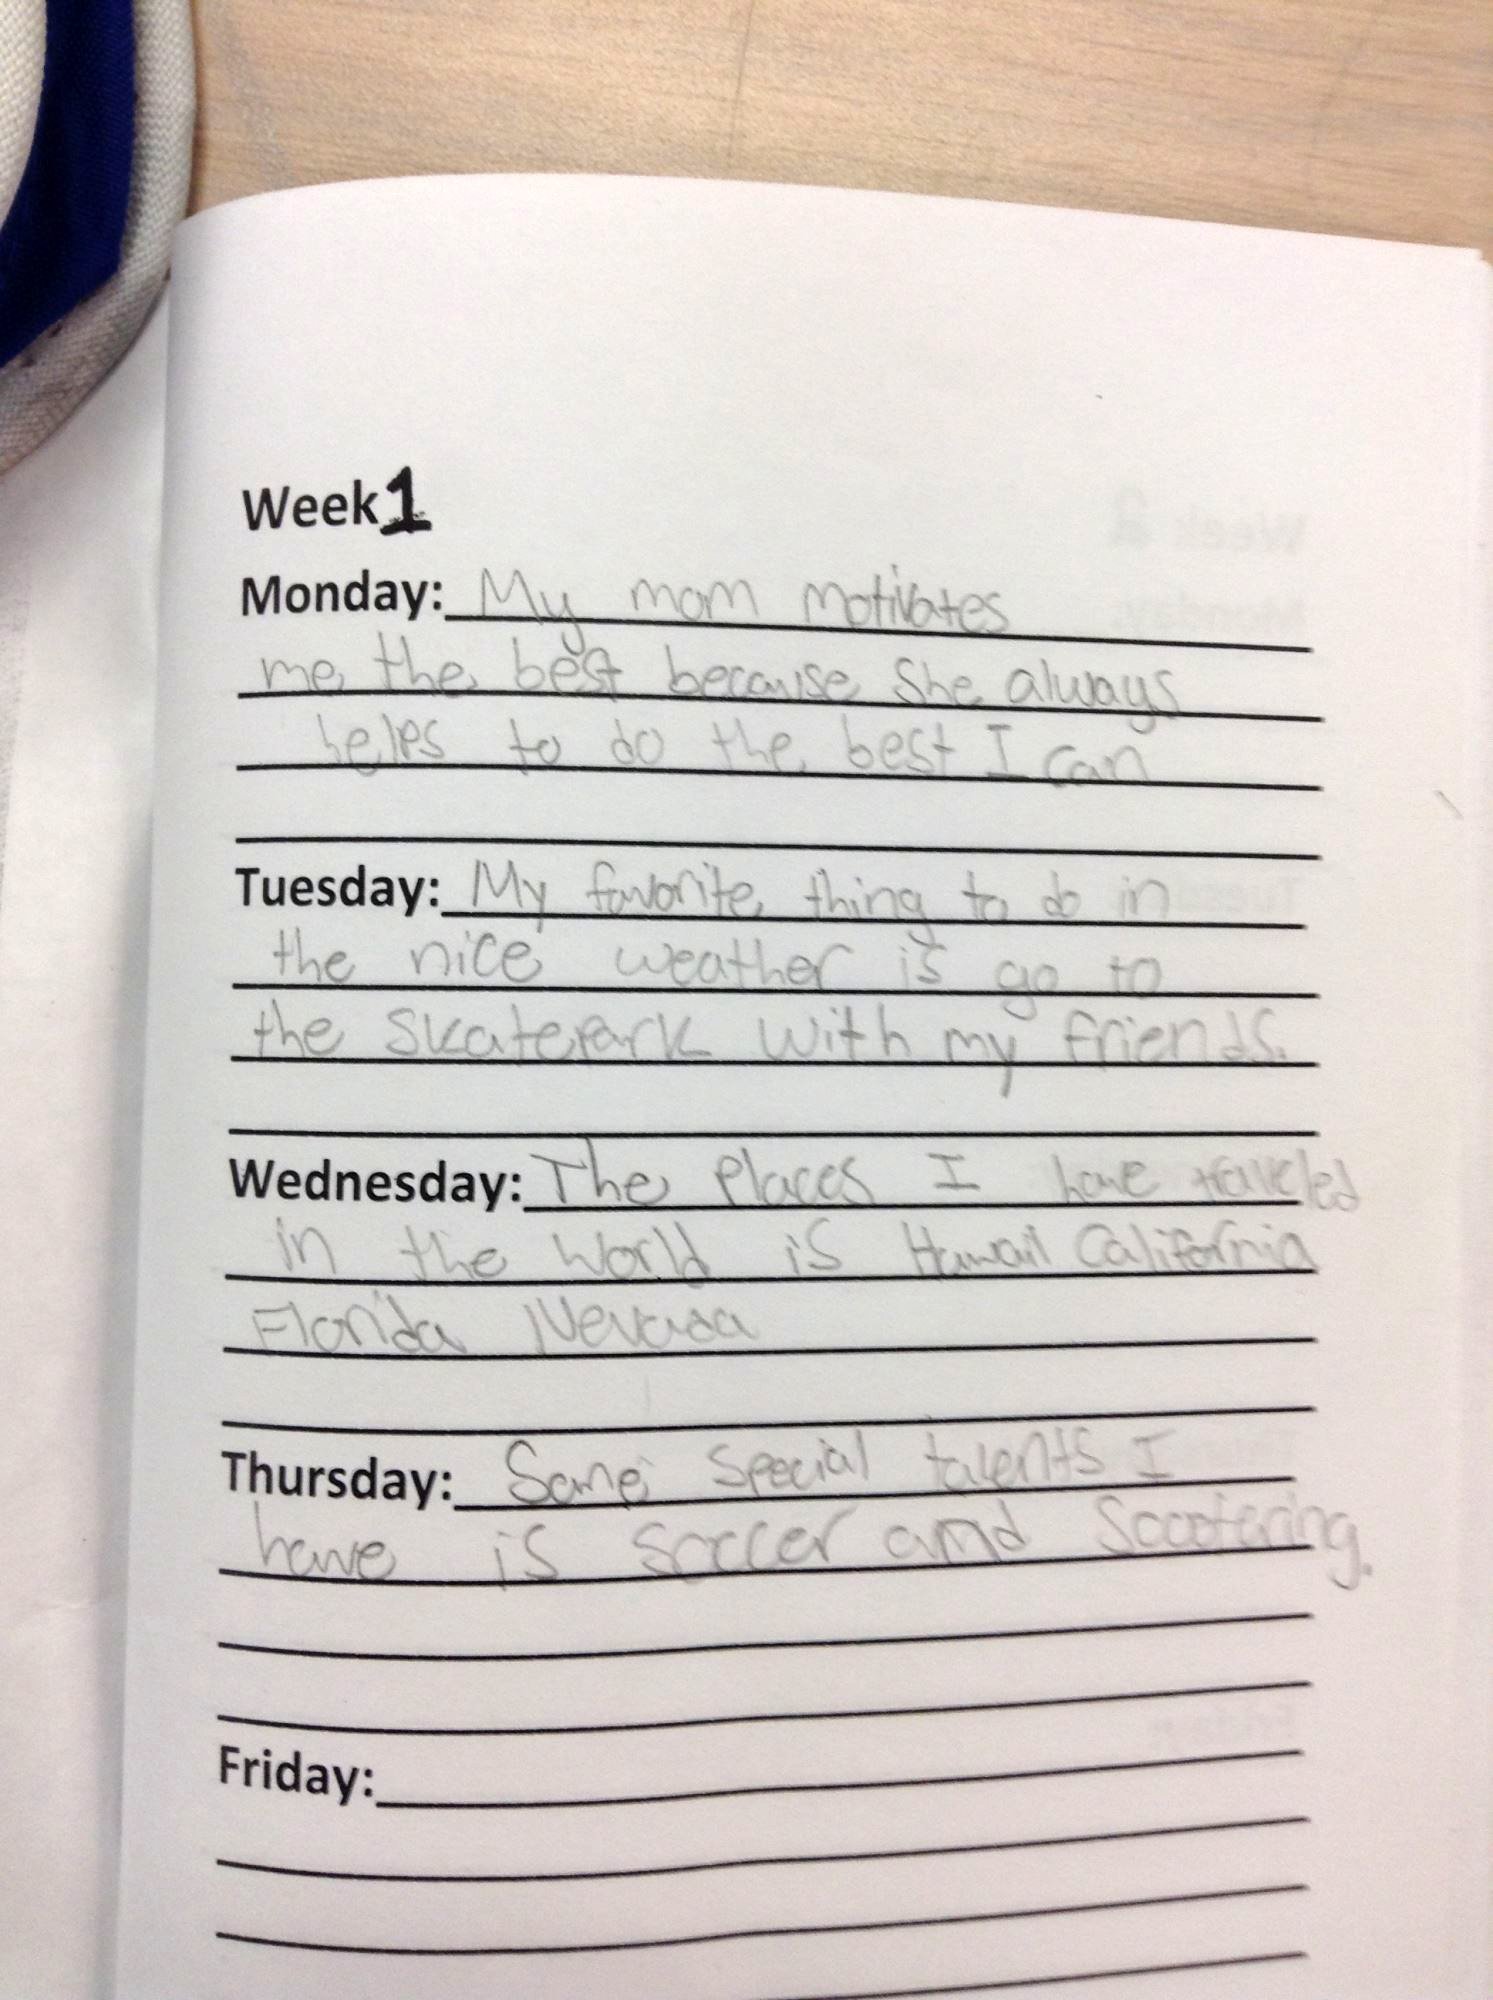 Week 1
Monday: My mom motivates
me the best because she always
helps to do the best I can
Tuesday: My favorite thing to do in
the nice weather is go to
the skatepark with my friends.
Wednesday: The places I have traveled
in the world is Hawaii California
Florida Nevada
Thursday: Some special talents I
have is soccer and Scootering.
Friday: